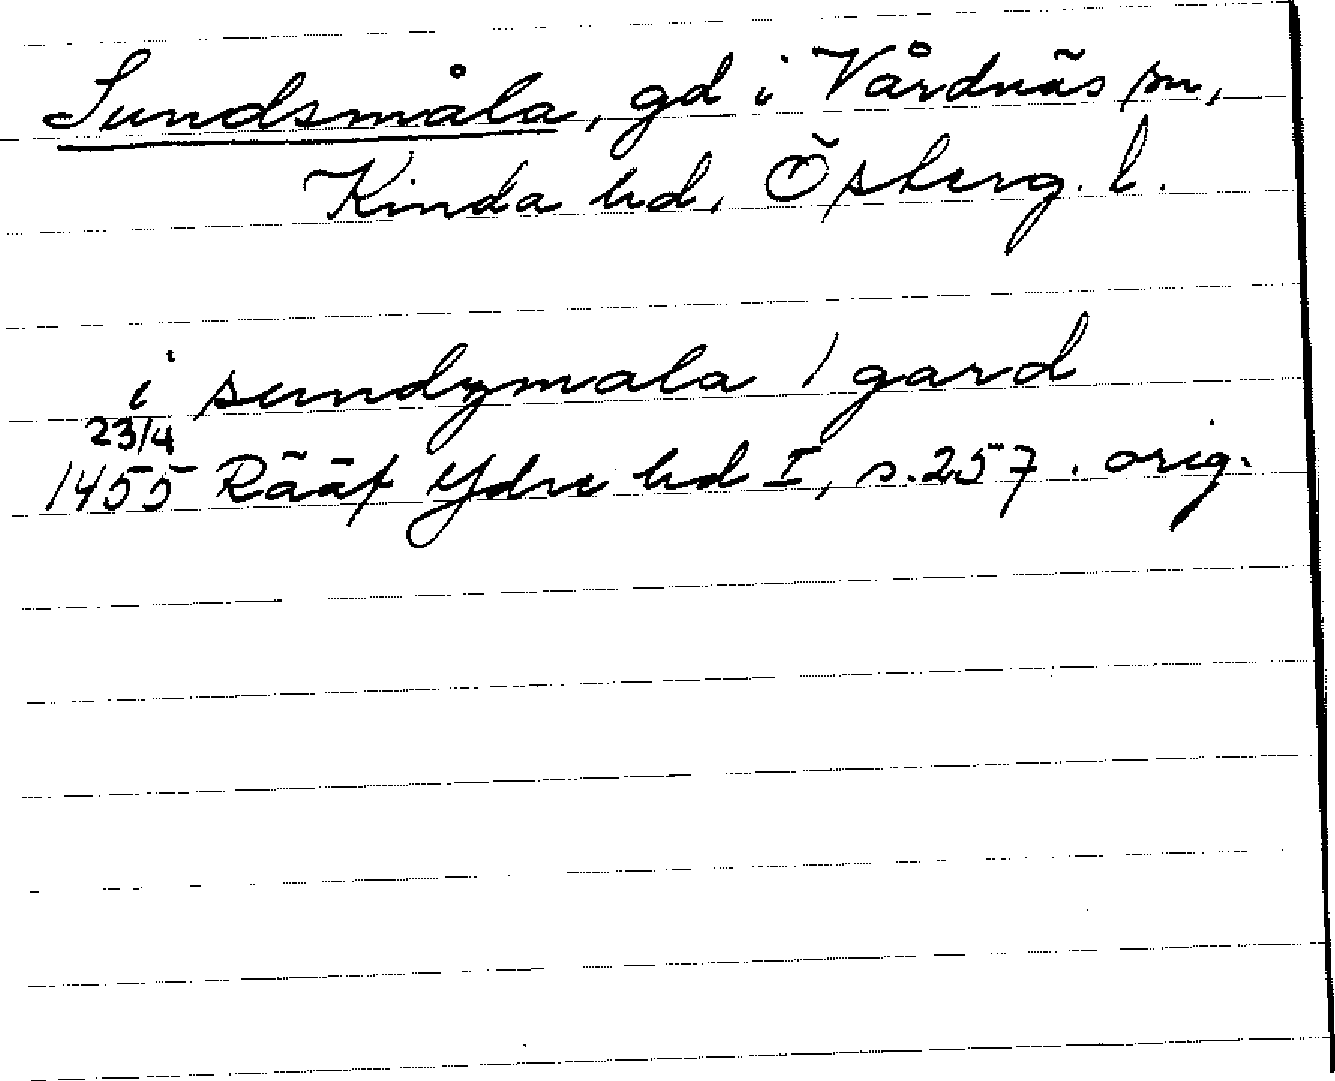 Sundsmåla, gd i Vårdnäs sn,
Kinda hd, Östergl. l.
i sundzmala 1 gard
23/4
1455 Rääf Ydre hd I, s. 257. orig.